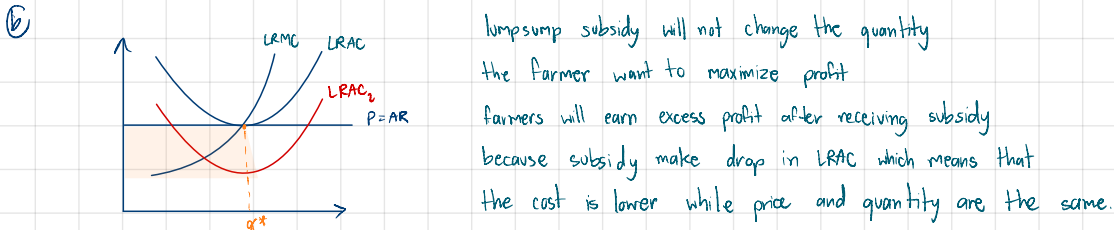 6
LRMC
LRAC
LRAC2
P=AR
q*
lumpsump subsidy will not change the quantity
the farmer want to maximize profit
farmers will earn excess profit after receiving subsidy
because subsidy make drop in LRAC which means that
the cost is lower while price and quantity are the same.